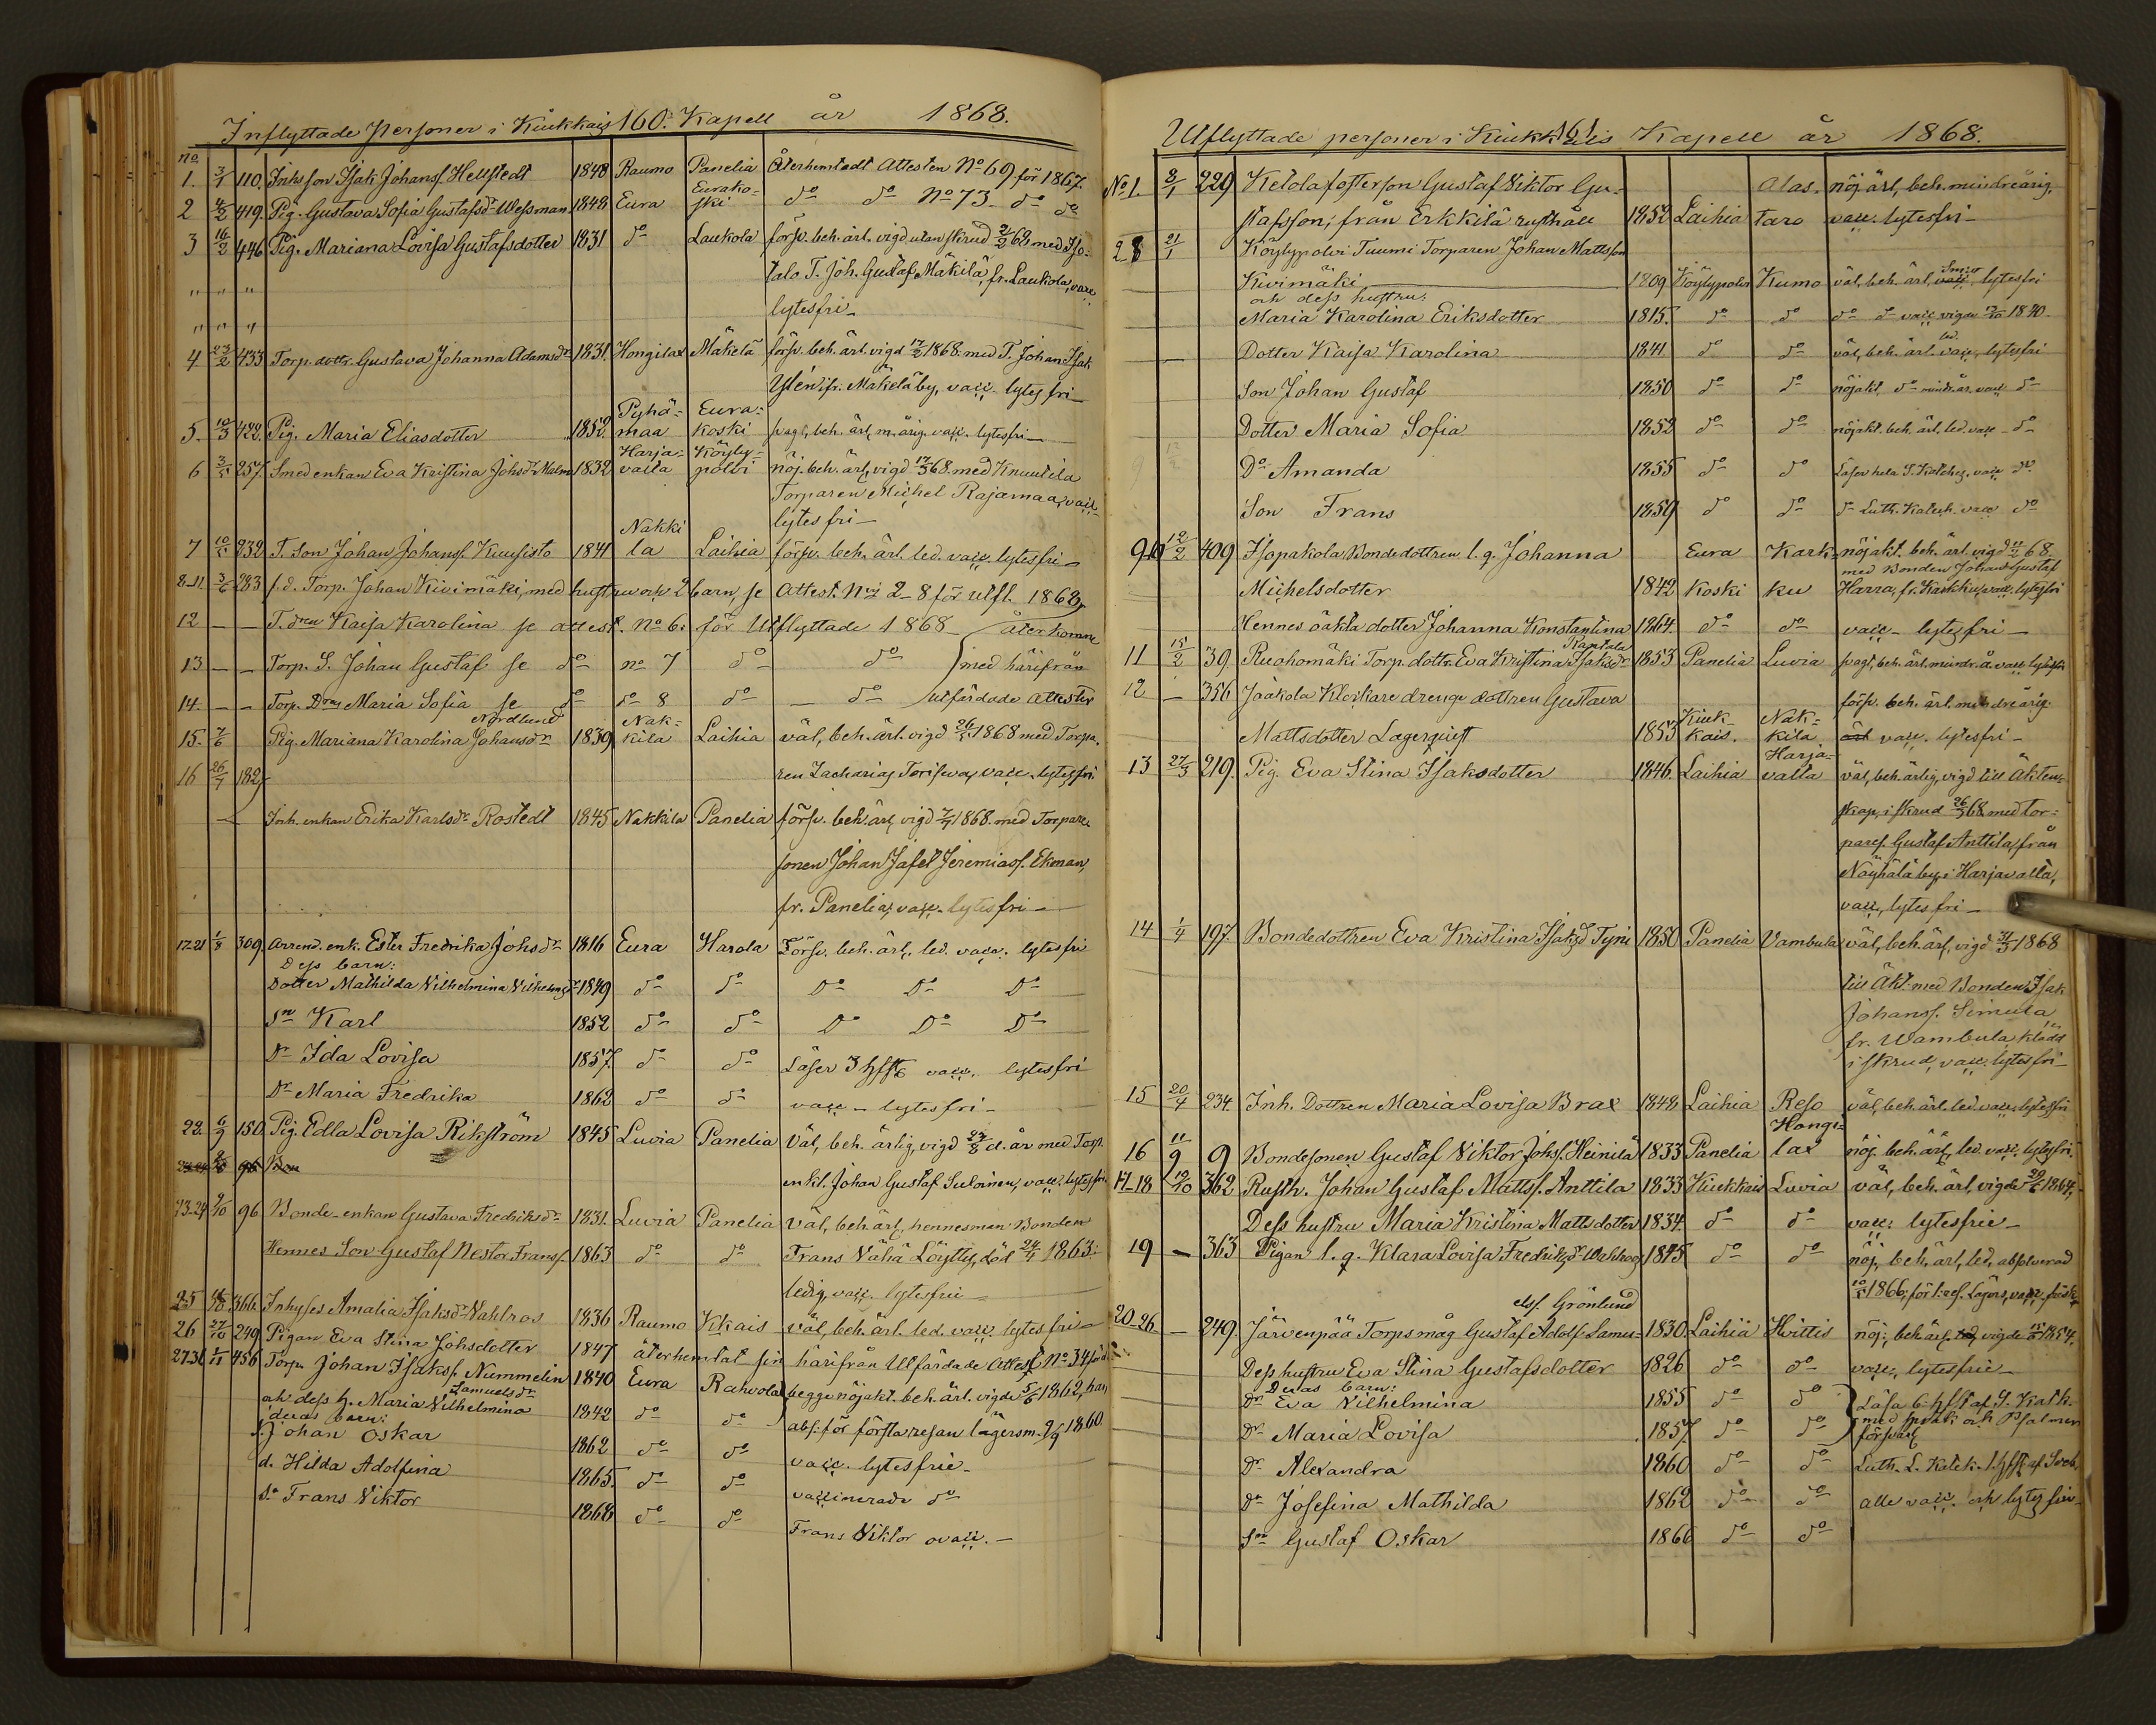 Inflyttade Personer i Kiukkais 160. Kapell år 1868.
No.
1. 3/1 110. Inhs son Isak Johans. Hellstedt 1848 Raumo Panelia Återhemtadt Attesten No 69 för 1867.
2 4/2 419. Pig. Gustava Sofia Gustafsdr Wessman 1848 Eura Eurako-
ski do do No 73 do do
3 16/2 446 Pig. Mariana Lovisa Gustafsdotter 1831 do Laukola försv. beh. ärl. vigd utan skrud 2/2 68 med Iso-
talo T. Joh. Gustaf Mäkilä, fr. Laukola, vacc
" " "
lytesfri
" " "
4 23/2 433 Torp. dottr. Gustava Johanna Adamsdr 1831 Hongilax Mäkelä försv. beh. ärl. vigd 17/2 1868. med T. Johan Isak
Ylén, fr. Mäkelä by, vacc. lytesfri
5. 10/3 422. Pig. Maria Eliasdotter 1852 Pyhä-
maa Eura-
koski svagt, beh. ärl, m. årig. vacc. lytesfri
6 3/5 257. Smedenkan Eva Kristina Johsdr Malm 1832 Harja-
valta Köyly-
polvi nöj. beh. ärl, vigd 17/5 68. med Knuutila
Torparen Michel Rajamaa, vacc
lytesfri
7 10/5 232 T. Son Johan Johans. Kuusisto 1841 Nakki
la Laihia försv. beh. ärl. led. vacc. lytesfri
8-11 3/6 283 f.d. Torp. Johan Kivimäki, med hustru och 2 barn, se Attest. No 2-8 för utfl. 1868,
12 — — T. dren Kaisa Karolina se attest. No 6. för Utflyttade 1868 återkomne
13 — — Torp. S. Johan Gustaf se do no 7 do do med härifrån
14. — — Torp. Drns Maria Sofia se do do 8 do do utfärdade attester
15. 7/6 Pig. Mariana Karolina Johansdr Nordlund 1839 Nak-
kila Laihia väl, beh. ärl. vigd 26/5 1868 med Torpa-
16 26/7 182, ren Zacharias Toriseva, vacc. lytesfri
Inh. enkan Erika Karlsdr Rostedt 1845 Nakkila Panelia försv. beh. ärl, vigd 7/7 1868. med Torpare
sonen Johan Jafet Jeremias. Ekman,
fr. Panelia, vacc. lytesfri
17-21 1/8 309. Arrend. enk. Ester Fredrika Johsdr 1816 Eura Harola Försv. beh. ärl. led. vacc. lytesfri
Dess barn:
Dotter Mathilda Vilhelmina Vilhelmsdr 1849 do do Do Do Do
Sn Karl 1852 do do Do Do Do
Dr Ida Lovisa 1857. do do Läser 3 hfst vacc. lytesfri
Dr Maria Fredrika 1862 do do vacc - lytesfri
22. 6/9 150 Pig. Edla Lovisa Rikström 1845 Luvia Panelia Väl, beh. ärlig, vigd 27/8 d. år med Torp.
96 Bon enkl. Johan Gustaf Suloinen, vacc. lytesfri
23-24 9/10 96 Bonde-enkan Gustava Fredriksdr 1831. Luvia Panelia Väl, beh. ärl, hennes man Bonden
Hennes Son Gustaf Nestor Frans. 1863 do do Frans Vähä Löytty, död 24/4 1863.
ledig, vacc. lytesfrie
25 366. Inhyses Amalia Isaksdr Vahlros 1836 Raumo Kkais väl, beh. ärl. led. vacc. lytesfri
26 27/10 249. Pigan Eva Stina Johsdotter 1847 återhemtat sin härifrån Utfärdade Attest No 34
27-31 1/11 456 Torp. Johan Isaks. Nummelin 1840 Eura Rahvola begge nöjakt. beh. ärl. vigde 5/6 1862, han
ock dess h. Maria Vilhelmina Samuelsdr 1842 do do abs. för första resan lägersm. 2/9 1860.
deras barn:
S. Johan Oskar 1862 do do vacc. lytesfrie
d. Hilda Adolfina 1865. do do vaccinerade do
Sn Frans Viktor 1868 do do Frans Viktor ovacc.
Utflyttade personer i Kiukkais 161 Kapell år 1868.
No 1. 3/1 229 Ketola fosterson Gustaf Viktor Gu-
stafsson, från Erkkilä rusthåll 1852 Laihia Alas-
taro nöj. ärl, beh. mindreårig,
vacc. lytesfri
2 8 21/1 Köylypolvi Tuumi Torparen Johan Mattsson
Kivimäki 1809 Köylypolvi Kumo väl, beh. ärl, vacc lytesfri
och dess hustru:
Maria Karolina Eriksdotter 1815. do do do do vacc vigde 1840
Dotter Kaisa Karolina 1841 do do väl, beh. ärl. led. vacc, lytesfri
Son Johan Gustaf 1850 do do nöjakt, do mindr. år. vacc do
Dotter Maria Sofia 1852 do do nöjakt. beh. ärl. led. vacc do
Do Amanda 1855 do do Läser hela S. Katches. vacc do
Son Frans 1859 do do do Luth. Katech. vacc do
9-10 12/2 409 Isopakola Bondedottren l. q. Johanna
Michelsdotter 1842 Eura
koski Kark-
ku nöjakt. beh. ärl. vigd 11/2 68.
med Bonden Johan Gustaf
Harra, fr. Karkku, vacc, lytesfri
Hennes oäkta dotter Johanna Konstantina 1864. do do vacc lytesfri
11 15/2 39. Ruohomäki Torp. dottr. Eva Kristina Isaksdr Rantala 1853 Panelia Luvia svagt, beh. ärl. mindr. å. vacc lytesfri
12 — 356 Jaakola Klockare drenge dottren Gustava
Mattsdotter Lagerquist 1853 Kiuk-
kais. Nak-
kila försv. beh. ärl. mindreårig.
vacc. lytesfri
13 27/3 219. Pig. Eva Stina Isaksdotter 1846. Laihia Harja-
valta väl, beh. ärlig, vigd till Äkten-
skap, i skrud 26/3 68. med tor-
pares. Gustaf Anttila, från
Näyhälä by, i Harjavalta,
vacc, lytesfri
14 1/4 197. Bondedottren Eva Kristina Isaksd Tyni 1850 Panelia Vambula väl, beh. ärl, vigd 31/3 1868
till Äkt. med Bonden Isak
Johans. Simula
fr. Wambula, klädd
i skrud, vacc. lytesfri
15 20/4 234. Inh. Dottren Maria Lovisa Brax 1848 Laihia Reso väl, beh. ärl. led. vacc, lytesfri
16 11/9 9 Bondesonen Gustaf Viktor Johs. Heinilä 1833 Panelia Hongi-
lax nöj. beh. ärl, led. vacc. lytesfri.
17-18 12/10 362 Rusth. Johan Gustaf Matts. Anttila 1833 Kiukkais Luvia väl, beh. ärl, vigde 29/6 1864,
Dess hustru Maria Kristina Mattsdotter 1834. do do vacc. lytesfrie
19 — 363 Pigan l. q. Klara Lovisa Fredriksdr Wahlroos 1845 do do nöj, beh. ärl, led, absolverad
10/5 1866, för 1: res. Lägers, vacc.
20-26 — 249. Järvenpää Torpsmåg Gustaf Adolf Samu-
els. Grönlund 1830. Laihia Hvittis nöj: beh ärl, vigde 1854.
Dess hustru Eva Stina Gustafsdotter 1826 do do vacc, lytesfrie
Deras barn:
Dr Eva Vilhelmina 1855 do do Läsa 6 hfst af S. Katk.
Dr Maria Lovisa 1857. do do med språk och Psalmen
försvarl
Dr Alexandra 1860 do do Luth. L. Katek. 1. hfst af Sveb.
Dr Josefina Mathilda 1862 do do alle vacc. och lytesfrie
Sn Gustaf Oskar 1866 do do